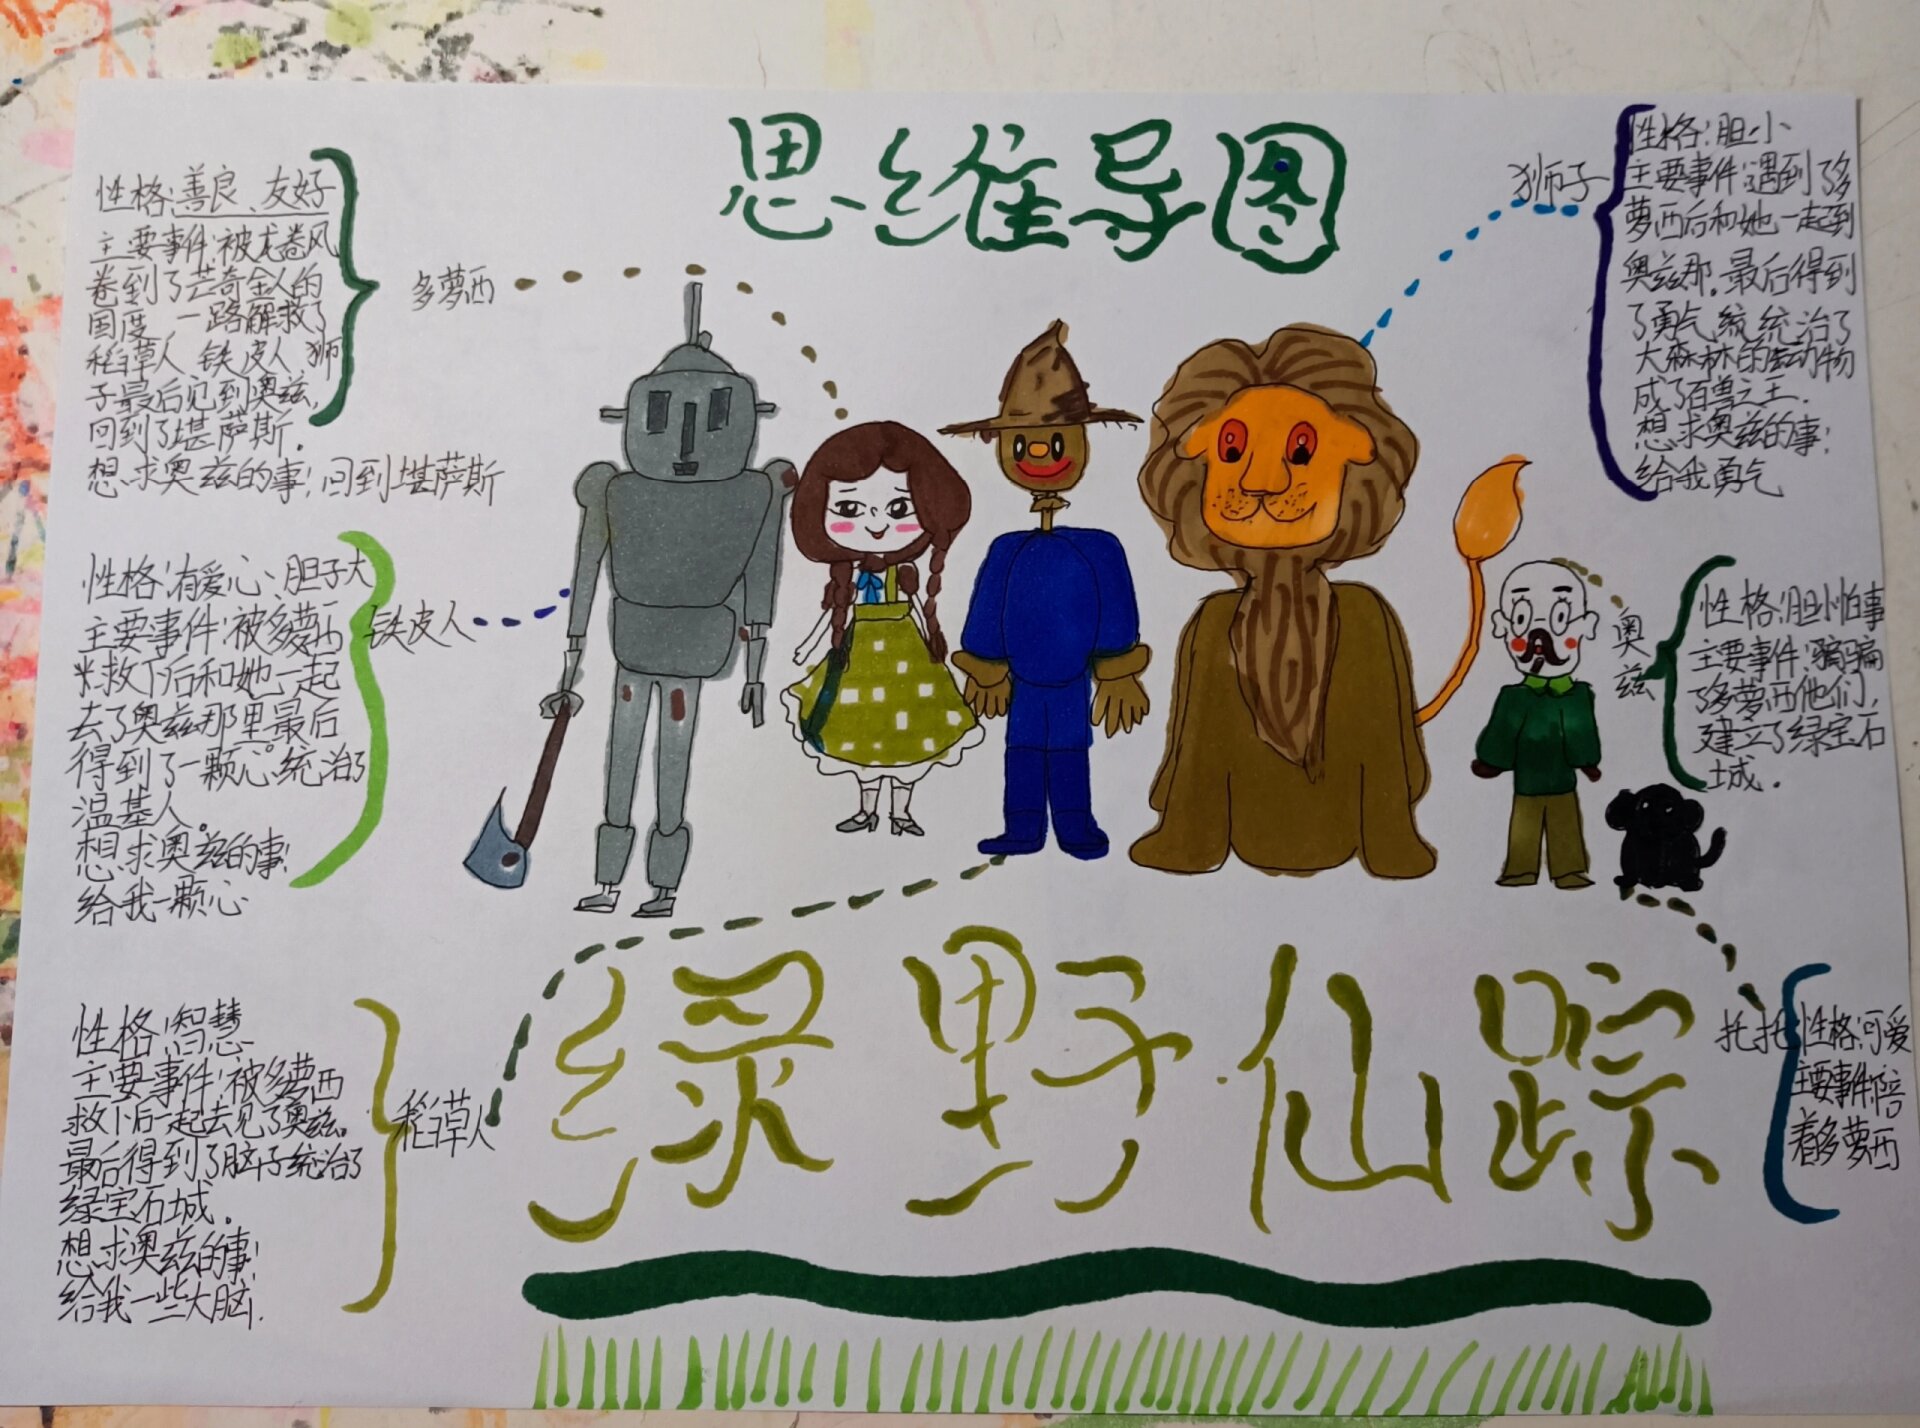 思维导图
性格:善良、友好
主要事件:被龙卷风
卷到了芒奇金人的
国度 一路解救了
稻草人 铁皮人 狮
子最后见到奥兹,
回到了堪萨斯.
想求奥兹的事:回到堪萨斯
多萝西
性格:有爱心、胆子大
主要事件:被多萝西
救下后和她一起
去了奥兹那里最后
得到了一颗心.统治了
温基人。
想求奥兹的事:
给我一颗心
铁皮人
性格:智慧
主要事件:被多萝西
救下后一起去见了奥兹。
最后得到了脑子统治了
绿宝石城.
想求奥兹的事:
给我一些大脑.
稻草人
狮子
性格:胆小
主要事件:遇到了多
萝西后和她一起到
奥兹那.最后得到
了勇气 统治了
大森林的动物
成了百兽之王.
想求奥兹的事:
给我勇气
奥兹
性格:胆小怕事
主要事件:骗骗
了多萝西他们,
建立了绿宝石
城.
托托
性格:可爱
主要事件:陪
着多萝西
绿野仙踪